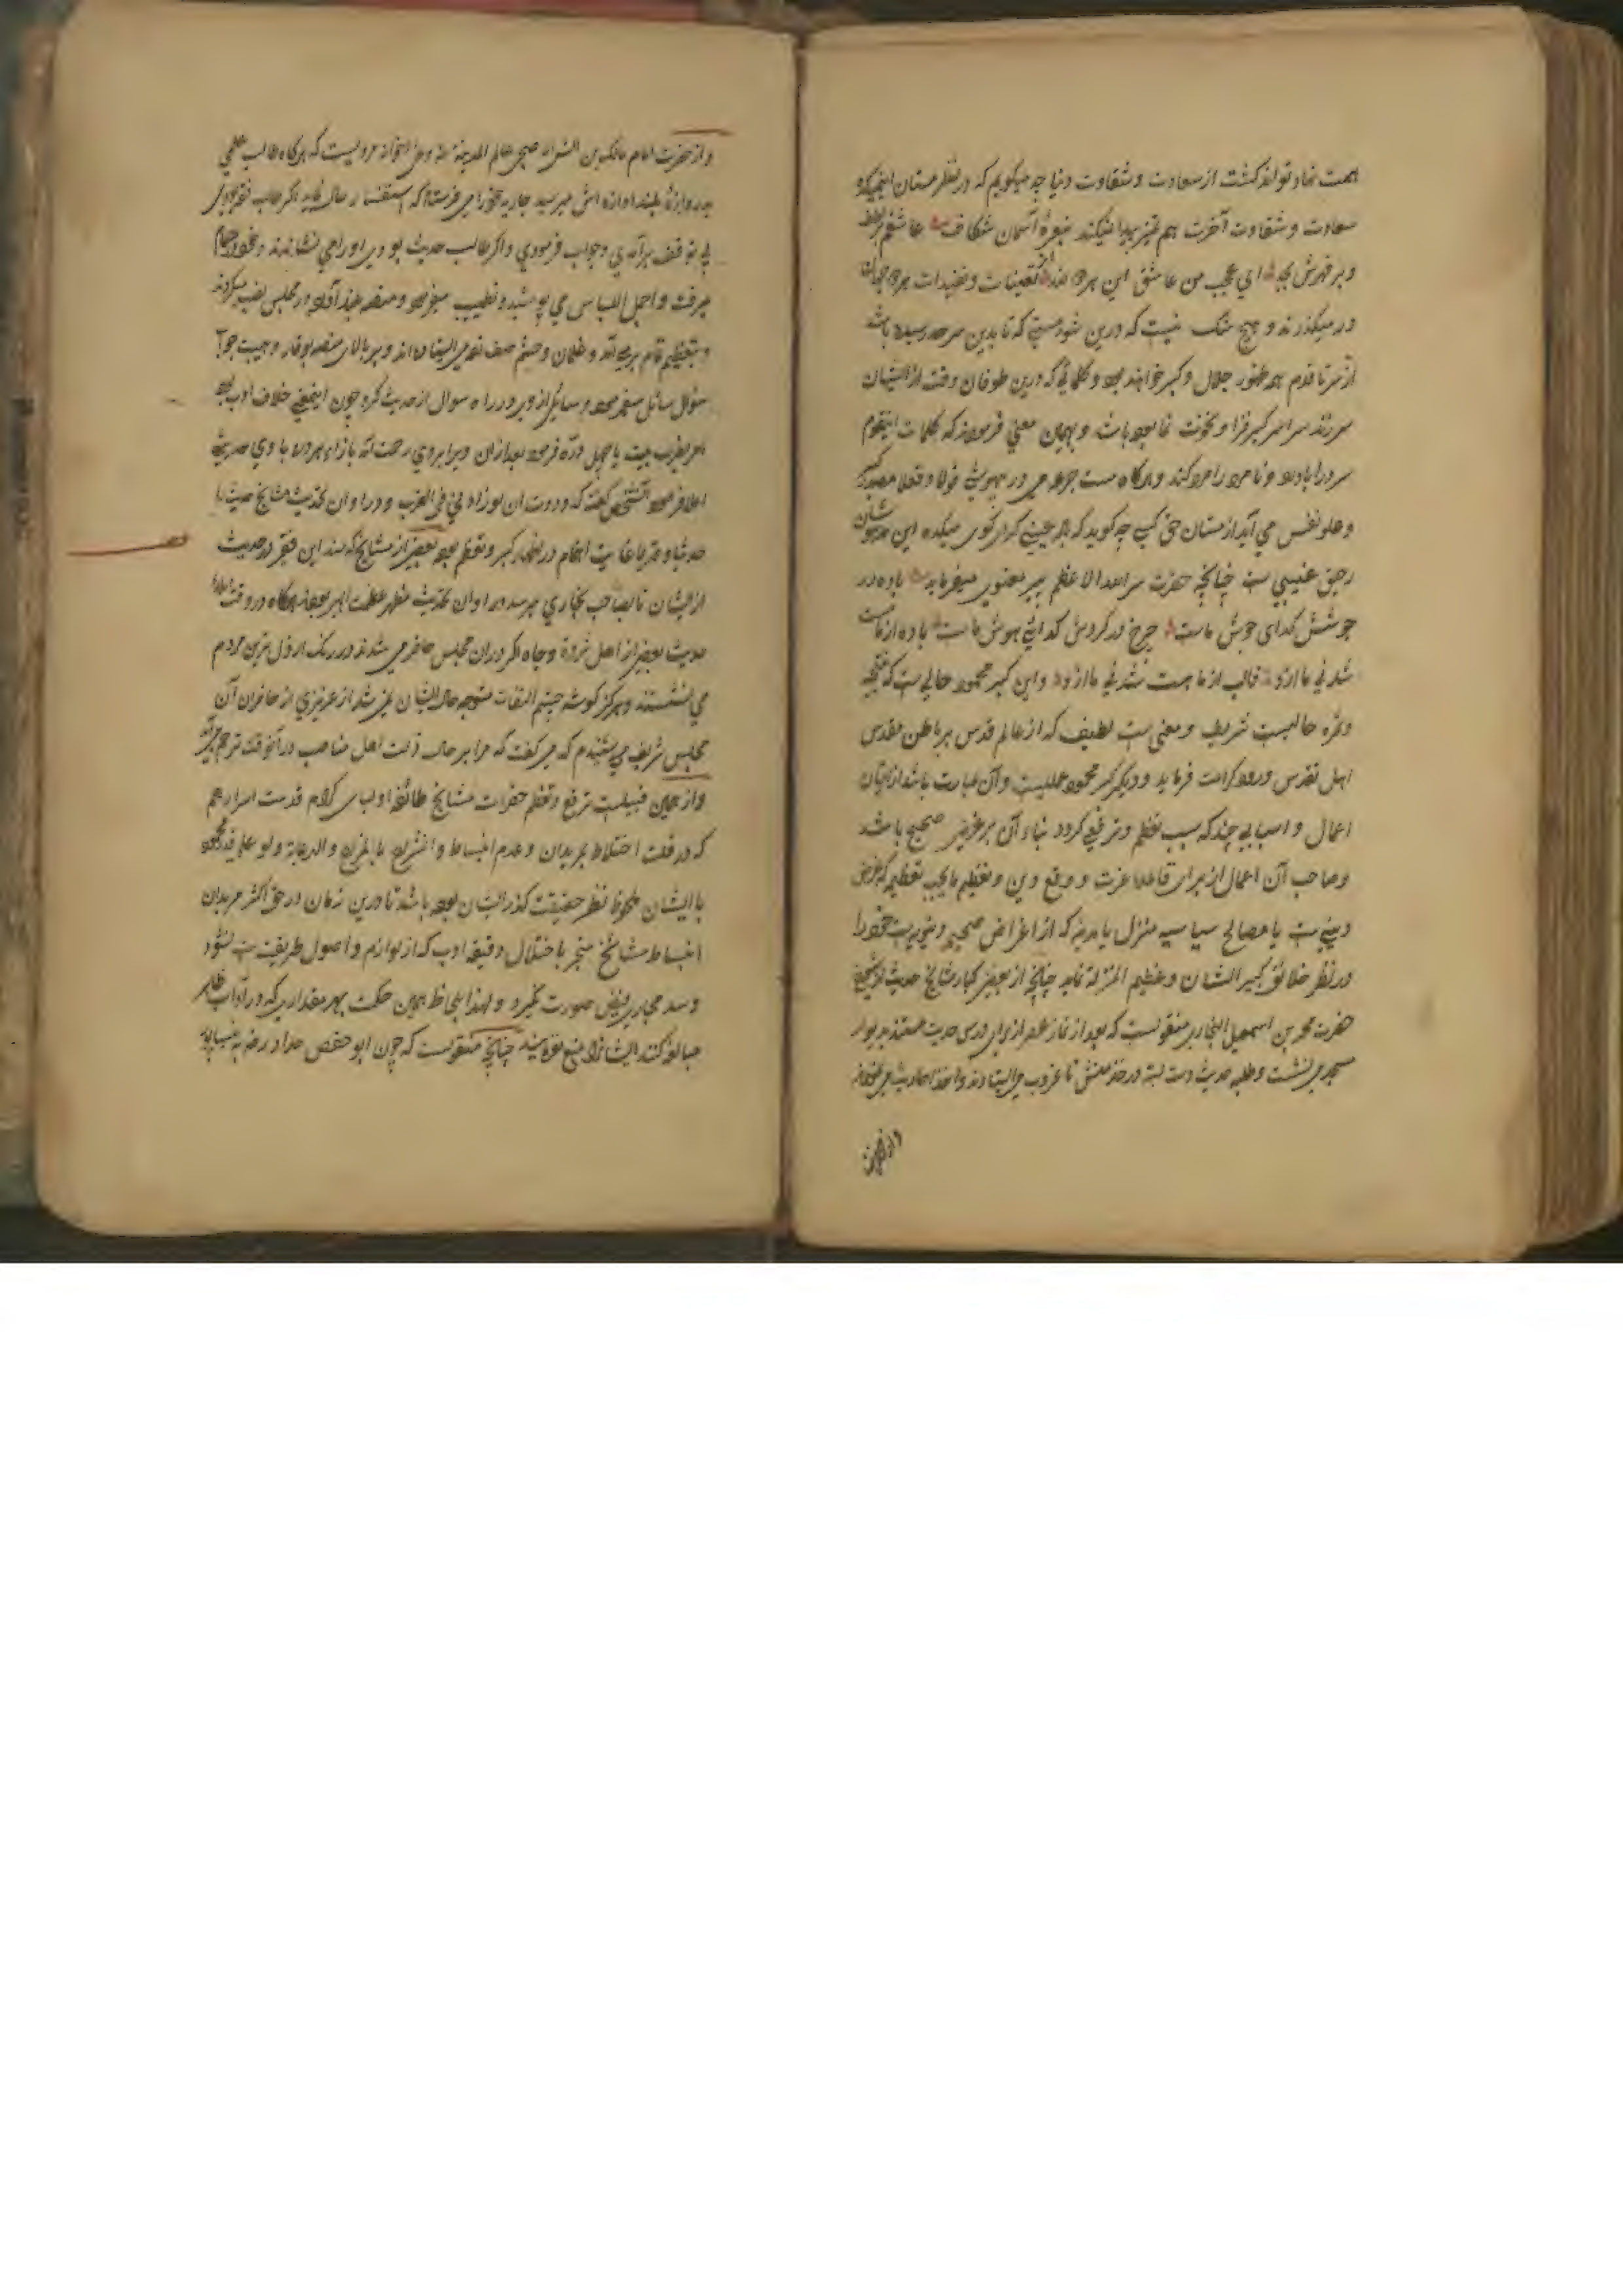 همت نهاد تواند گشت از سعادت و شقاوت دنیا چه میگویم که در نظر مستان اینمیکده
سعادت و شقاوت آخرت هم تمیز پیدا نمیکند بنعرهٔ آسمان شکاف عاشقم بر لطف
و بر قهرش بجد ای عجب من عاشق این هر دو ضد از تعینات و تقیدات هر دو جهان
در میگذرند و هیچ شک نیست که درین شور مستی که تا بدین سرحد رسیده باشد
از سر تا قدم همه ظهور جلال و کبر خواهند بود و کلماتی که درین طوفان وقت از ایشان
سر زند سراسر کبر فزا و نخوت نما بود و بهمان معنی فرموده‌اند که کلمات اینقوم
مرد را باد دهد و نامرد را مرد کند و هرگاه مست جرعه می در بیهوشی
و علو نفس می آید از مستان حق کسی چه گوید که بلاچینی گران کوی میکده این
رحیق غیبی است چنانچه حضرت سر الله الاعظم پیر معنوی میفرماید باده در
جوشش گدای جوش ماست چرخ در گردش گدای هوش ماست باده از ما مست
شد نی ما ازو قالب از ما هست شد نی ما ازو و این کبر محمود حالی است که نتیجه
و ثمره حالیست شریف و معنی است لطیف که از عالم قدس بر باطن مقدس
اهل تقدس ورود کرامت فرماید و دیگر کبر محمود عملیست و آن عبارت باشد از اتیان
اعمال و اسبابی چند که سبب تعظم و ترفع گردد بناء آن بر غرض صحیح باشد
و صاحب آن اعمال از برای قاعده عزت و وقع دین و تعظیم ما یجب تعظیمه که غرض
دینی است یا مصالح سیاسیه منزل یا مدینه که از اغراض صحیح دنیویست خود را
در نظر خلائق کبیر الشان و عظیم المنزلة نماید چنانچه از بعضی کبار مشایخ حدیث
حضرت محمد بن اسمعیل البخاری منقولست که بعد از نماز عصر از برای درس حدیث مستند بدیوار
مسجد می نشست و طلبه حدیث دست بسته در خدمتش تا غروب می ایستادند و اخذ احادیث می نمودند
و از حضرت
و از حضرت امام مالک بن انس عالم المدینة مرویست که هرگاه طالب علمی
بدروازهٔ بلند اوازه اش میرسید جاریه خود را میفرستاد که استفسار حال نماید اگر طالب فقه بودی
بی توقف برآمدی و جواب فرمودی و اگر طالب حدیث بودی او را می نشاندند و خود بحمام
میرفت و اجمل اللباس می پوشید و تطییب میفرمود و منصه بلند آوازه در مجلس نصب میکردند
و بتعظیم تمام برمی آمد و غلمان و حشم صف زده می ایستاده اند و بر بالای منصه بوقار و هیبت جواب
سؤال سائل میفرمود و سایلی از وی در راه سوال از حدیث کرد چون اینمعنی خلاف ادب بود
امر بضرب بیست یا چهل دره فرمود بعد از آن ویرا بروی رحمت آمد بازاء هر دره با وی حدیثی
املا فرمود آنشخص گفته که وددت ان لو زادنی فی الضرب و در اوان تحدیث مشایخ حدیث را
حدیثا و قدیما غایت اهتمام در اظهار کبر و تعظم بود بعضی از مشایخ که سند این فقیر در حدیث
از ایشان تا بصاحب بخاری میرسد در اوان تحدیث مظهر عظمت الهی بوده‌اند هرگاه در وقت املاء
حدیث بعضی از اهل ثروة و جاه اگر در ان مجلس حاضر می شدند در رنگ ارذل ترین مردم
می نشستند و هرگز گوشه چشم التفات متوجه حال ایشان نمی شد از عزیزی از حاضران آن
مجلس شریف می شنیدم که می گفت که مرا بر حال ذلت اهل مناصب در آنوقت ترحم می آمد
و از همین قبیلست ترفع و تعظم حضرات مشایخ طائفه اولیاء کرام قدست اسرارهم
که در قلت اختلاط بمریدان و عدم انبساط و انشراح بالمزاح و الدعابة ولو علی قدر محمود
با ایشان ملحوظ نظر حقیقت گذر ایشان بوده باشد تا درین زمان در حق اکثر مریدان
انبساط مشایخ منجر باختلال دقیقه ادب که از لوازم و اصول طریقت است نشود
و سد مجاری فیض صورت نگیرد و لهذا بلحاظ همین حکمت بهر مقداری که در آداب ظاهر
مبالغه کنند ایشانرا منع نفرمایند چنانچه منقولست که چون ابو حفص حداد رضه به نیشاپور